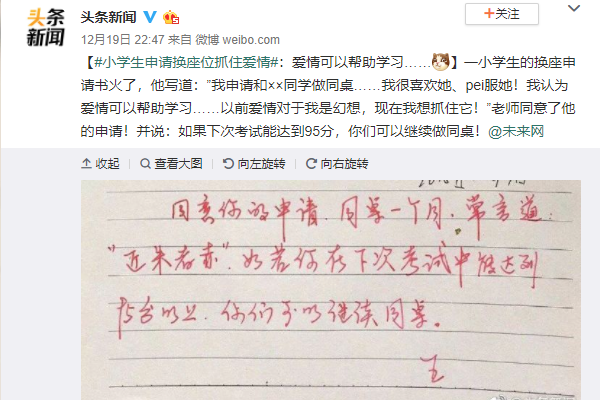 头条新闻
头条
新闻
+关注
12月19日 22:47 来自 微博 weibo.com
【#小学生申请换座位抓住爱情#：爱情可以帮助学习……】一小学生的换座申
请书火了，他写道：”我申请和××同学做同桌……我很喜欢她、pei服她！我认为
爱情可以帮助学习……以前爱情对于我是幻想，现在我想抓住它！”老师同意了他
的申请！并说：如果下次考试能达到95分，你们可以继续做同桌！@未来网
收起 查看大图 向左旋转 向右旋转
同意你的申请，同桌一个月，常言道：
“近朱者赤”，如若你在下次考试中能达到
95分以上，你们可以继续同桌。
王